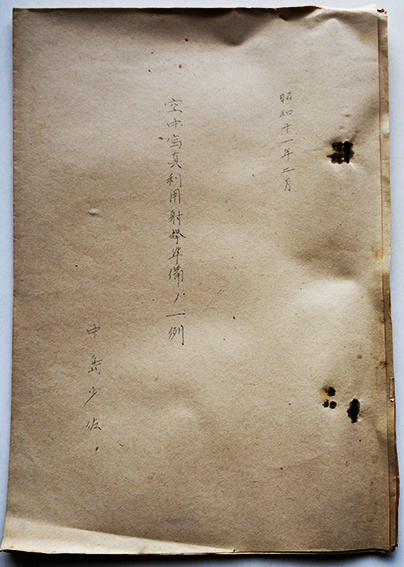 昭和十一年二月
空中写真利用射撃準備ノ一例
中島少佐